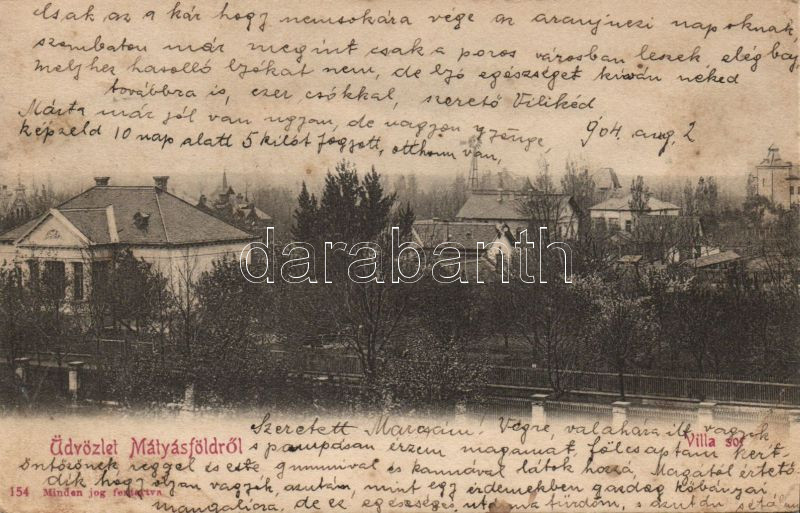 Csak az a kár hogy nemsokára vége az aranjuezi napoknak,
szombaton már megint csak a poros városban leszek, elég baj,
melyhez hasolló Izókat nem, de Izó egészséget kiván neked
továbbra is, ezer csókkal, szerető Vilikéd
Márta már jól van ugyan, de nagyon gyönge, 904. aug. 2
képzeld 10 nap alatt 5 kilót fogyott, otthon van,
darabanth
Üdvözlet Mátyásföldről
Villa sor
Szeretett Marcsám! Végre, valahára itt vagyok
s pompásan érzem magamat, fölcsaptam kert-
öntözőnek reggel és este gummival és kannával látok hozzá, Magától értető-
dik hogy olyan vagyok, azután, mint egy érdemekben gazdag kőbányai
mangalicza, de ez egészséges, utánna fürdöm, s azután
154 Minden jog fentartva